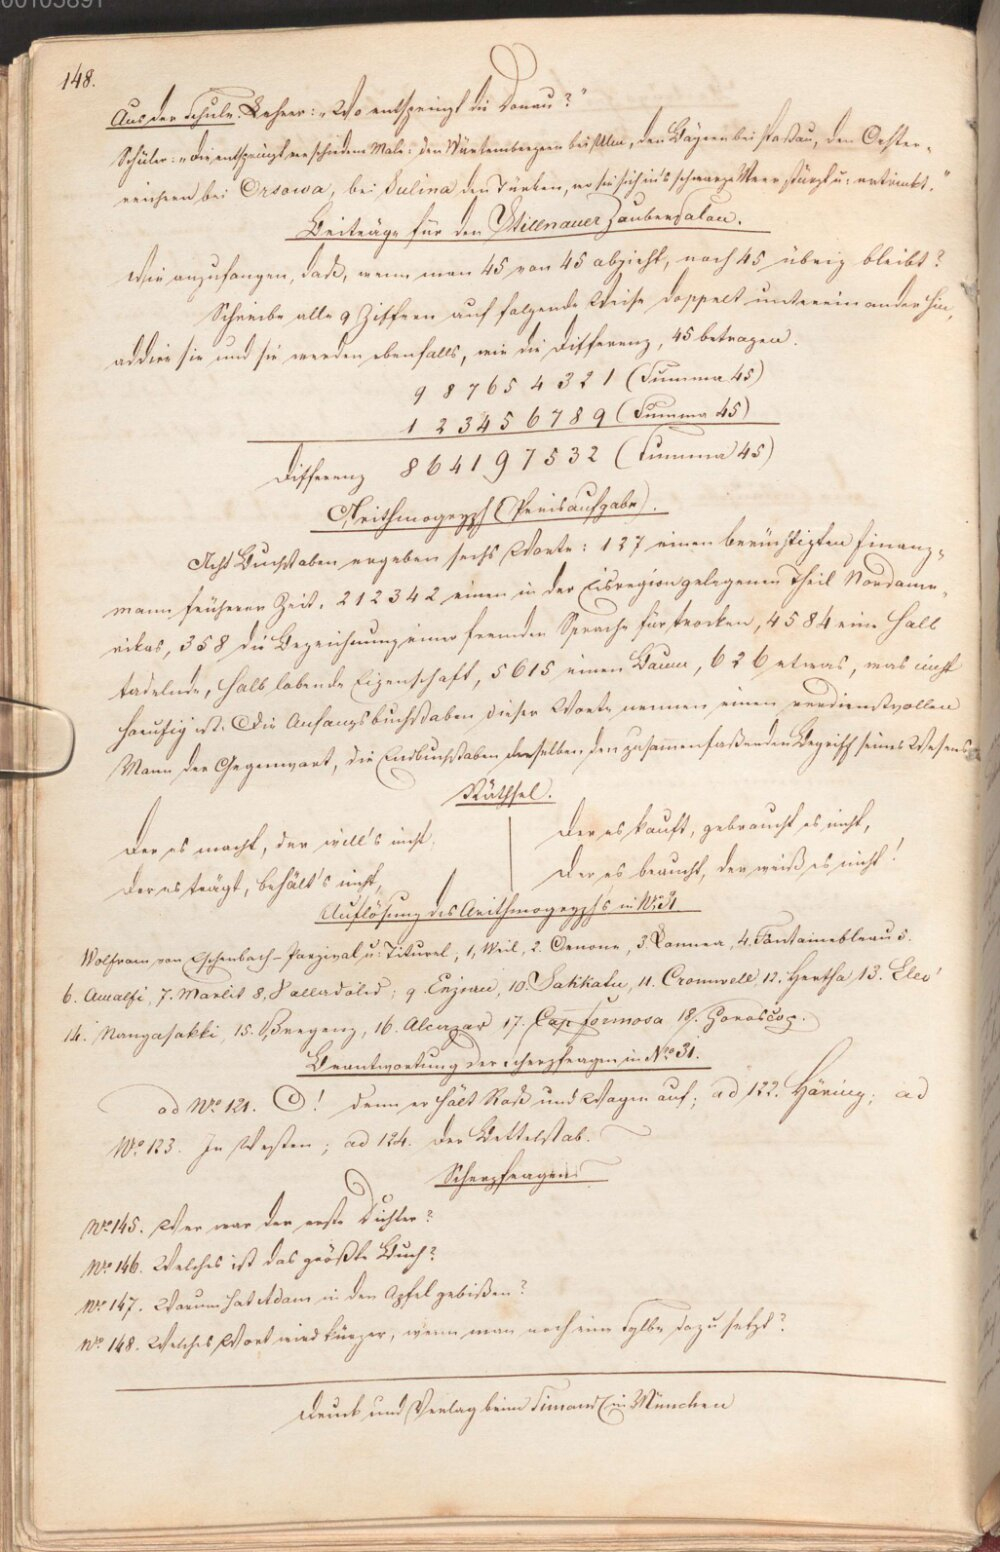 00105891
148.
Aus der Schule. Lehrer: „Wo entspringt die Donau?"
Schüler: „Die entspringt verschiedene Male: den Würtembergern bei Ulm, den Bayern bei Passau, den Oester-
reichern bei Orsowa, bei Sulina den Türken, wo sie sich in's schwarze Meer stürzt u: ertrinkt."
Beiträge für den Willnauer Zaubersalon.
Wie anzufangen, daß, wenn man 45 von 45 abzieht, noch 45 übrig bleibt?
Schreibe alle 9 Ziffern auf folgende Weise doppelt untereinander hin,
addire sie und sie werden ebenfalls, wie die Differenz, 45 betragen.
9 8 7 6 5 4 3 2 1 (Summa 45)
1 2 3 4 5 6 7 8 9 (Summa 45)
Differenz 8 6 4 1 9 7 5 3 2 (Summa 45)
Arithmogryph (Preisaufgabe).
Acht Buchstaben ergeben sechs Worte: 1 2 7 einen berüchtigten Finanz-
mann früherer Zeit, 2 1 2 3 4 2 einen in der Eisregion gelegenen Theil Nordame-
rikas, 3 5 8 die Bezeichnung einer fremden Sprache für trocken, 4 5 8 4 eine halb
tadelnde, halb lobende Eigenschaft, 5 6 1 5 einen Baum, 6 2 6 etwas, was nicht
häufig ist. Die Anfangsbuchstaben dieser Worte nennen einen verdienstvollen
Mann der Gegenwart, die Endbuchstaben derselben den zusammenfaßenden Begriff seines Wesens
Räthsel.
Der es macht, der will's nicht.
Der es trägt, behält's nicht,
Der es kauft, gebraucht es nicht,
Der es braucht, der weiß es nicht!
Auflösung des Arithmogryph's in No 31.
Wolfram von Eschenbach – Parzival u: Titurel, 1, Weil, 2. Oenone, 3. Lannea, 4. Fontainebleau 5.
6. Amalfi, 7. Marlit 8, Valladolid; 9. Enzian, 10. Sakkatu, 11. Cromwell 12. Hertha 13. Eleo'
14. Nangasakki, 15. Bregenz, 16. Alcazar 17. Cap formosa 18. Horoscop.
Beantwortung der Scherzfragen in No 31.
ad No 121. O! denn er hält Roß und Wagen auf; ad 122. Häring; ad
No 123. In Westen; ad 124. Der Bettelstab.
Scherzfragen
No 145. Wer war der erste Dichter?
No 146. Welches ist das größte Buch?
No 147. Warum hat Adam in den Apfel gebißen?
No 148. Welches Wort wird kürzer, wenn man noch eine Sylbe dazu setzt?
Druck und Verlag beim Simandl in München